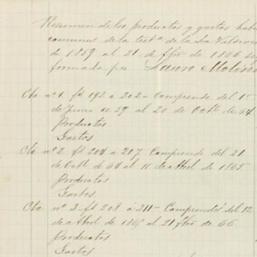 Resumen de los productos y gastos hab
comunes de la test.ª de la Sra
de 1859 al 21 de de 1866
formada por Lauro
Cta nº 1. fº 193 a 202 Comprende del 1º
de Junio de 59 al 20 de Octbe. de 64
Productos
Gastos
Cta nº 2. fº 204 a 207 Comprende del 21
de Octbe de 64 al 11 de Abril de 1865
Productos
Gastos
Cta nº 3. fº 208 a 211 Comprende del 12
de Abril de 186 al 21 de 66
Productos
Gastos